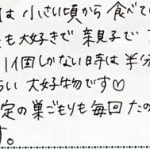 は小さい頃から食べてい
も大好きで親子で
1個しかない時は半分
らい大好物です♡
定の巣ごもりも毎回たの
す。